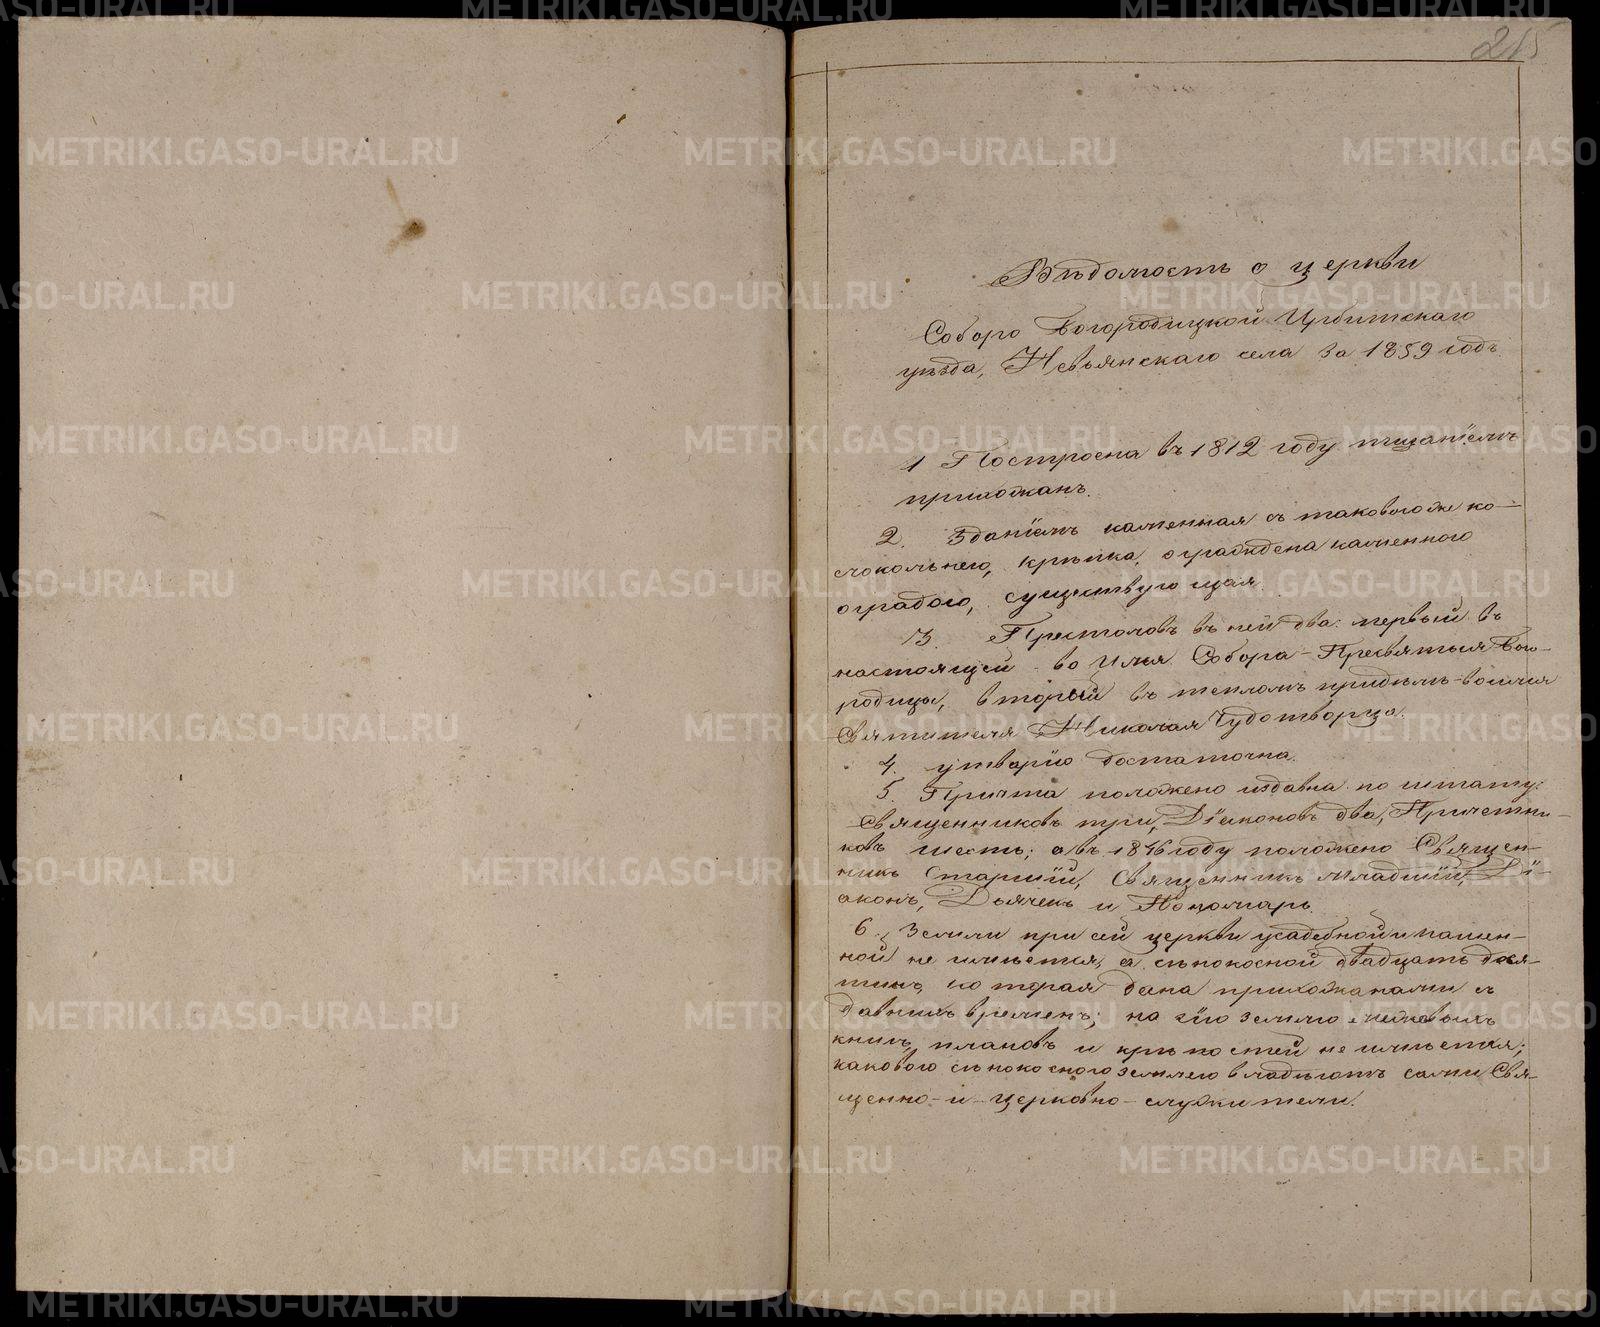 215
Вѣдомость о церкви
Соборо Богородицкой Ирбитскаго
уѣзда, Невьянскаго села за 1859 годъ.
1 Построена въ 1812 году тщаніемъ
прихожанъ.
2. Зданіемъ каменная съ таковою же ко-
локольнею, крѣпка, ограждена каменною
оградою, существующая.
3. Престоловъ въ ней два: первый въ
настоящей во имя Собора Пресвятыя Бого-
родицы, вторый въ тепломъ придѣлѣ во имя
Святителя Николая Чудотворца.
4. утварію достаточна.
5. Причта положено издавна по штату:
Священниковъ три, Діаконовъ два, Причетни-
ковъ шесть; а въ 1846 году положено Священ-
никъ Старшій, Священникъ Младшій, Ді-
аконъ, Дьячекъ и Пономарь.
6. Земли при сей церкви усадебной и пашен-
ной не имѣется, а сѣнокосной двадцать деся-
тинъ, которая дана прихожанами съ
давнихъ временъ; на сію землю межевыхъ
книгъ, плановъ и крѣпостей не имѣется;
каковою сѣнокосною землею владѣютъ сами Свя-
щенно-и-церковно-служители.
METRIKI.GASO-URAL.RU